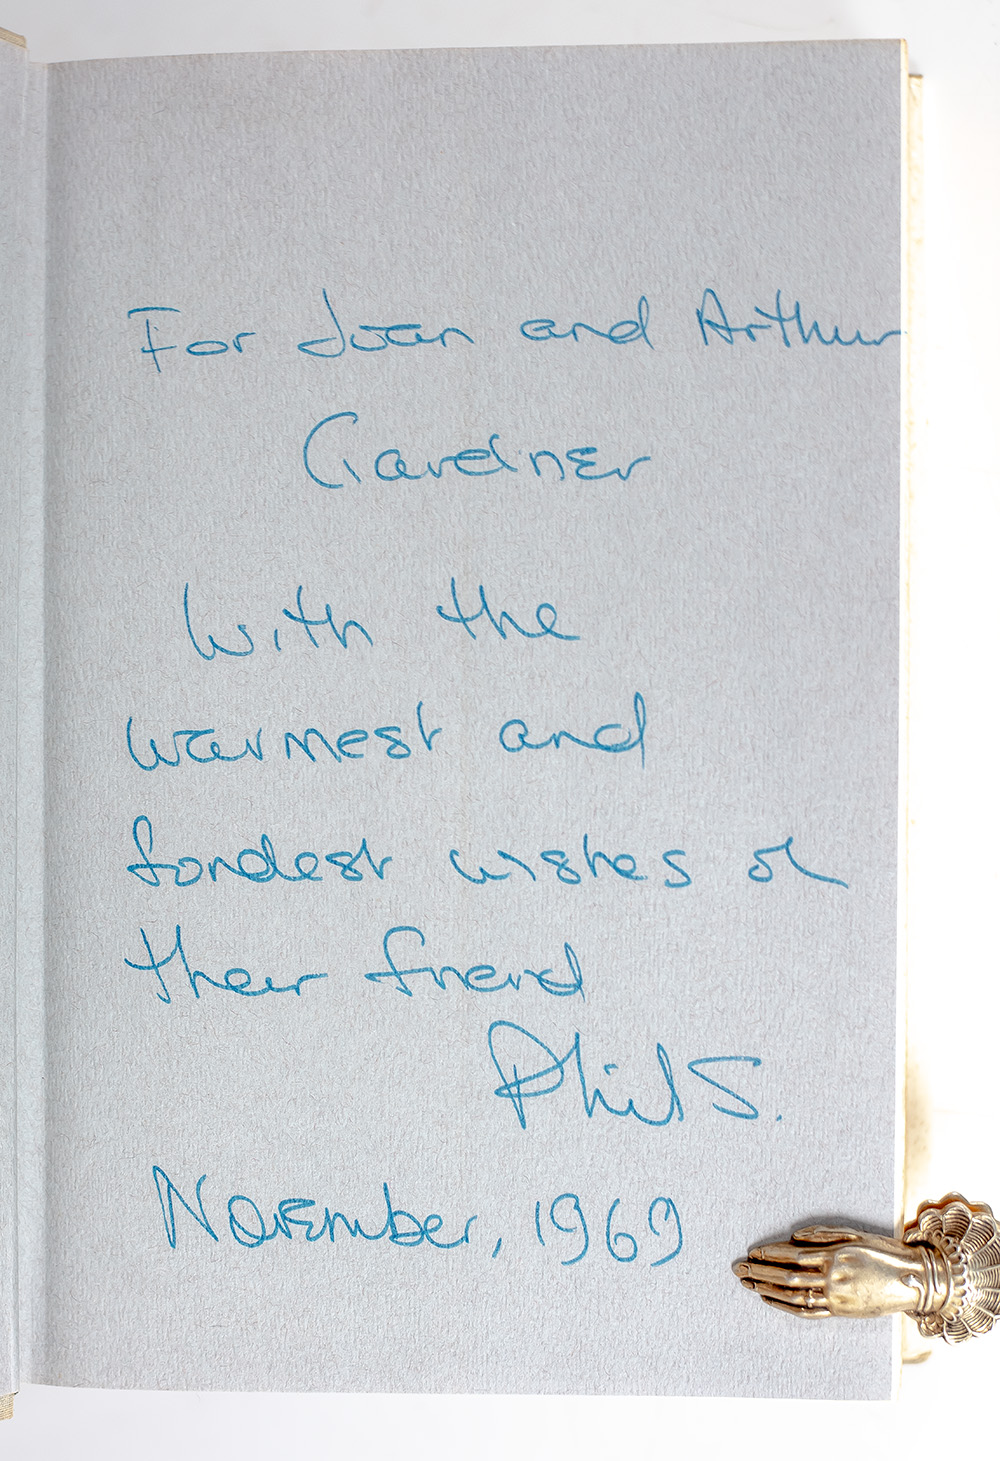 For Joan and Arthur
Gardner
With the
warmest and
fondest wishes of
their friend
Phil S.
November, 1969